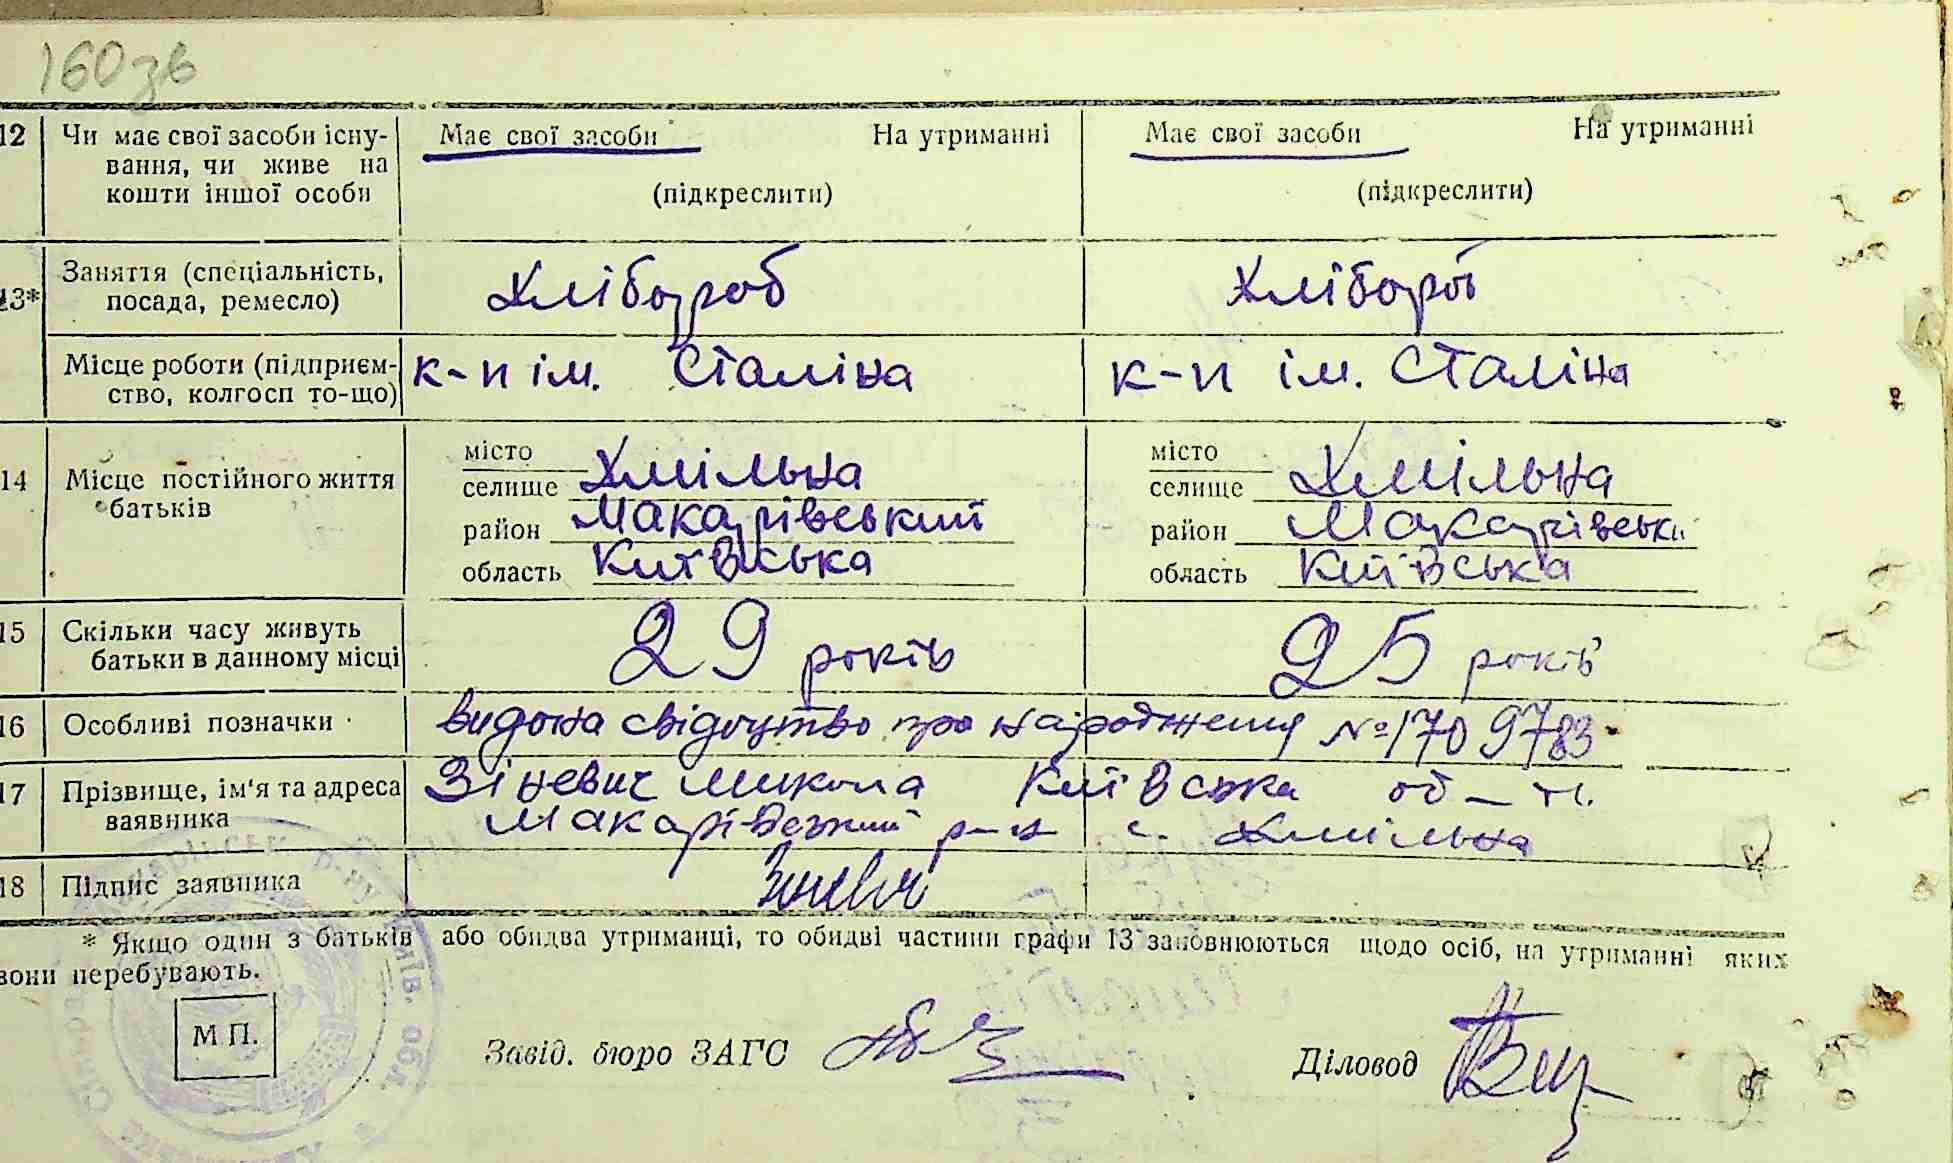 160 зв
12 Чи має свої засоби існу- Має свої засоби На утриманні Має свої засоби На утриманні
вання, чи живе на
кошти іншої особи (підкреслити) (підкреслити)
13* Заняття (спеціальність, Хлібороб Хлібороб
посада, ремесло)
Місце роботи (підприєм- к-п ім. Сталіна к-п ім. Сталіна
ство, колгосп то-що)
місто місто
14 Місце постійного життя селище Хмільна селище Хмільна
батьків район Макарівський район Макарівськи
область Київська область Київська
15 Скільки часу живуть 29 років 25 років
батьки в данному місці
16 Особливі позначки видана свідоцтво про народження № 1709783
17 Прізвище, ім'я та адреса Зіневич Микола Київська об-ті.
заявника Макарівський р-н с. Хмільна
18 Підпис заявника Зіневич
* Якщо один з батьків або обидва утриманці, то обидві частини графи 13 заповнюються щодо осіб, на утриманні яких
вони перебувають.
М П.
Завід. бюро ЗАГС Діловод